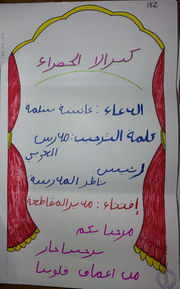 152
كيرالا الخضراء
الدعاء : عائشة سلمة
كلمة الترحيب : مدرس
العربي
رئيس :
ناظر المدرسة
إفتتاح : مدير المقاطعة
مرحبا بكم
ترحيبا حار
من اعماق قلوبنا